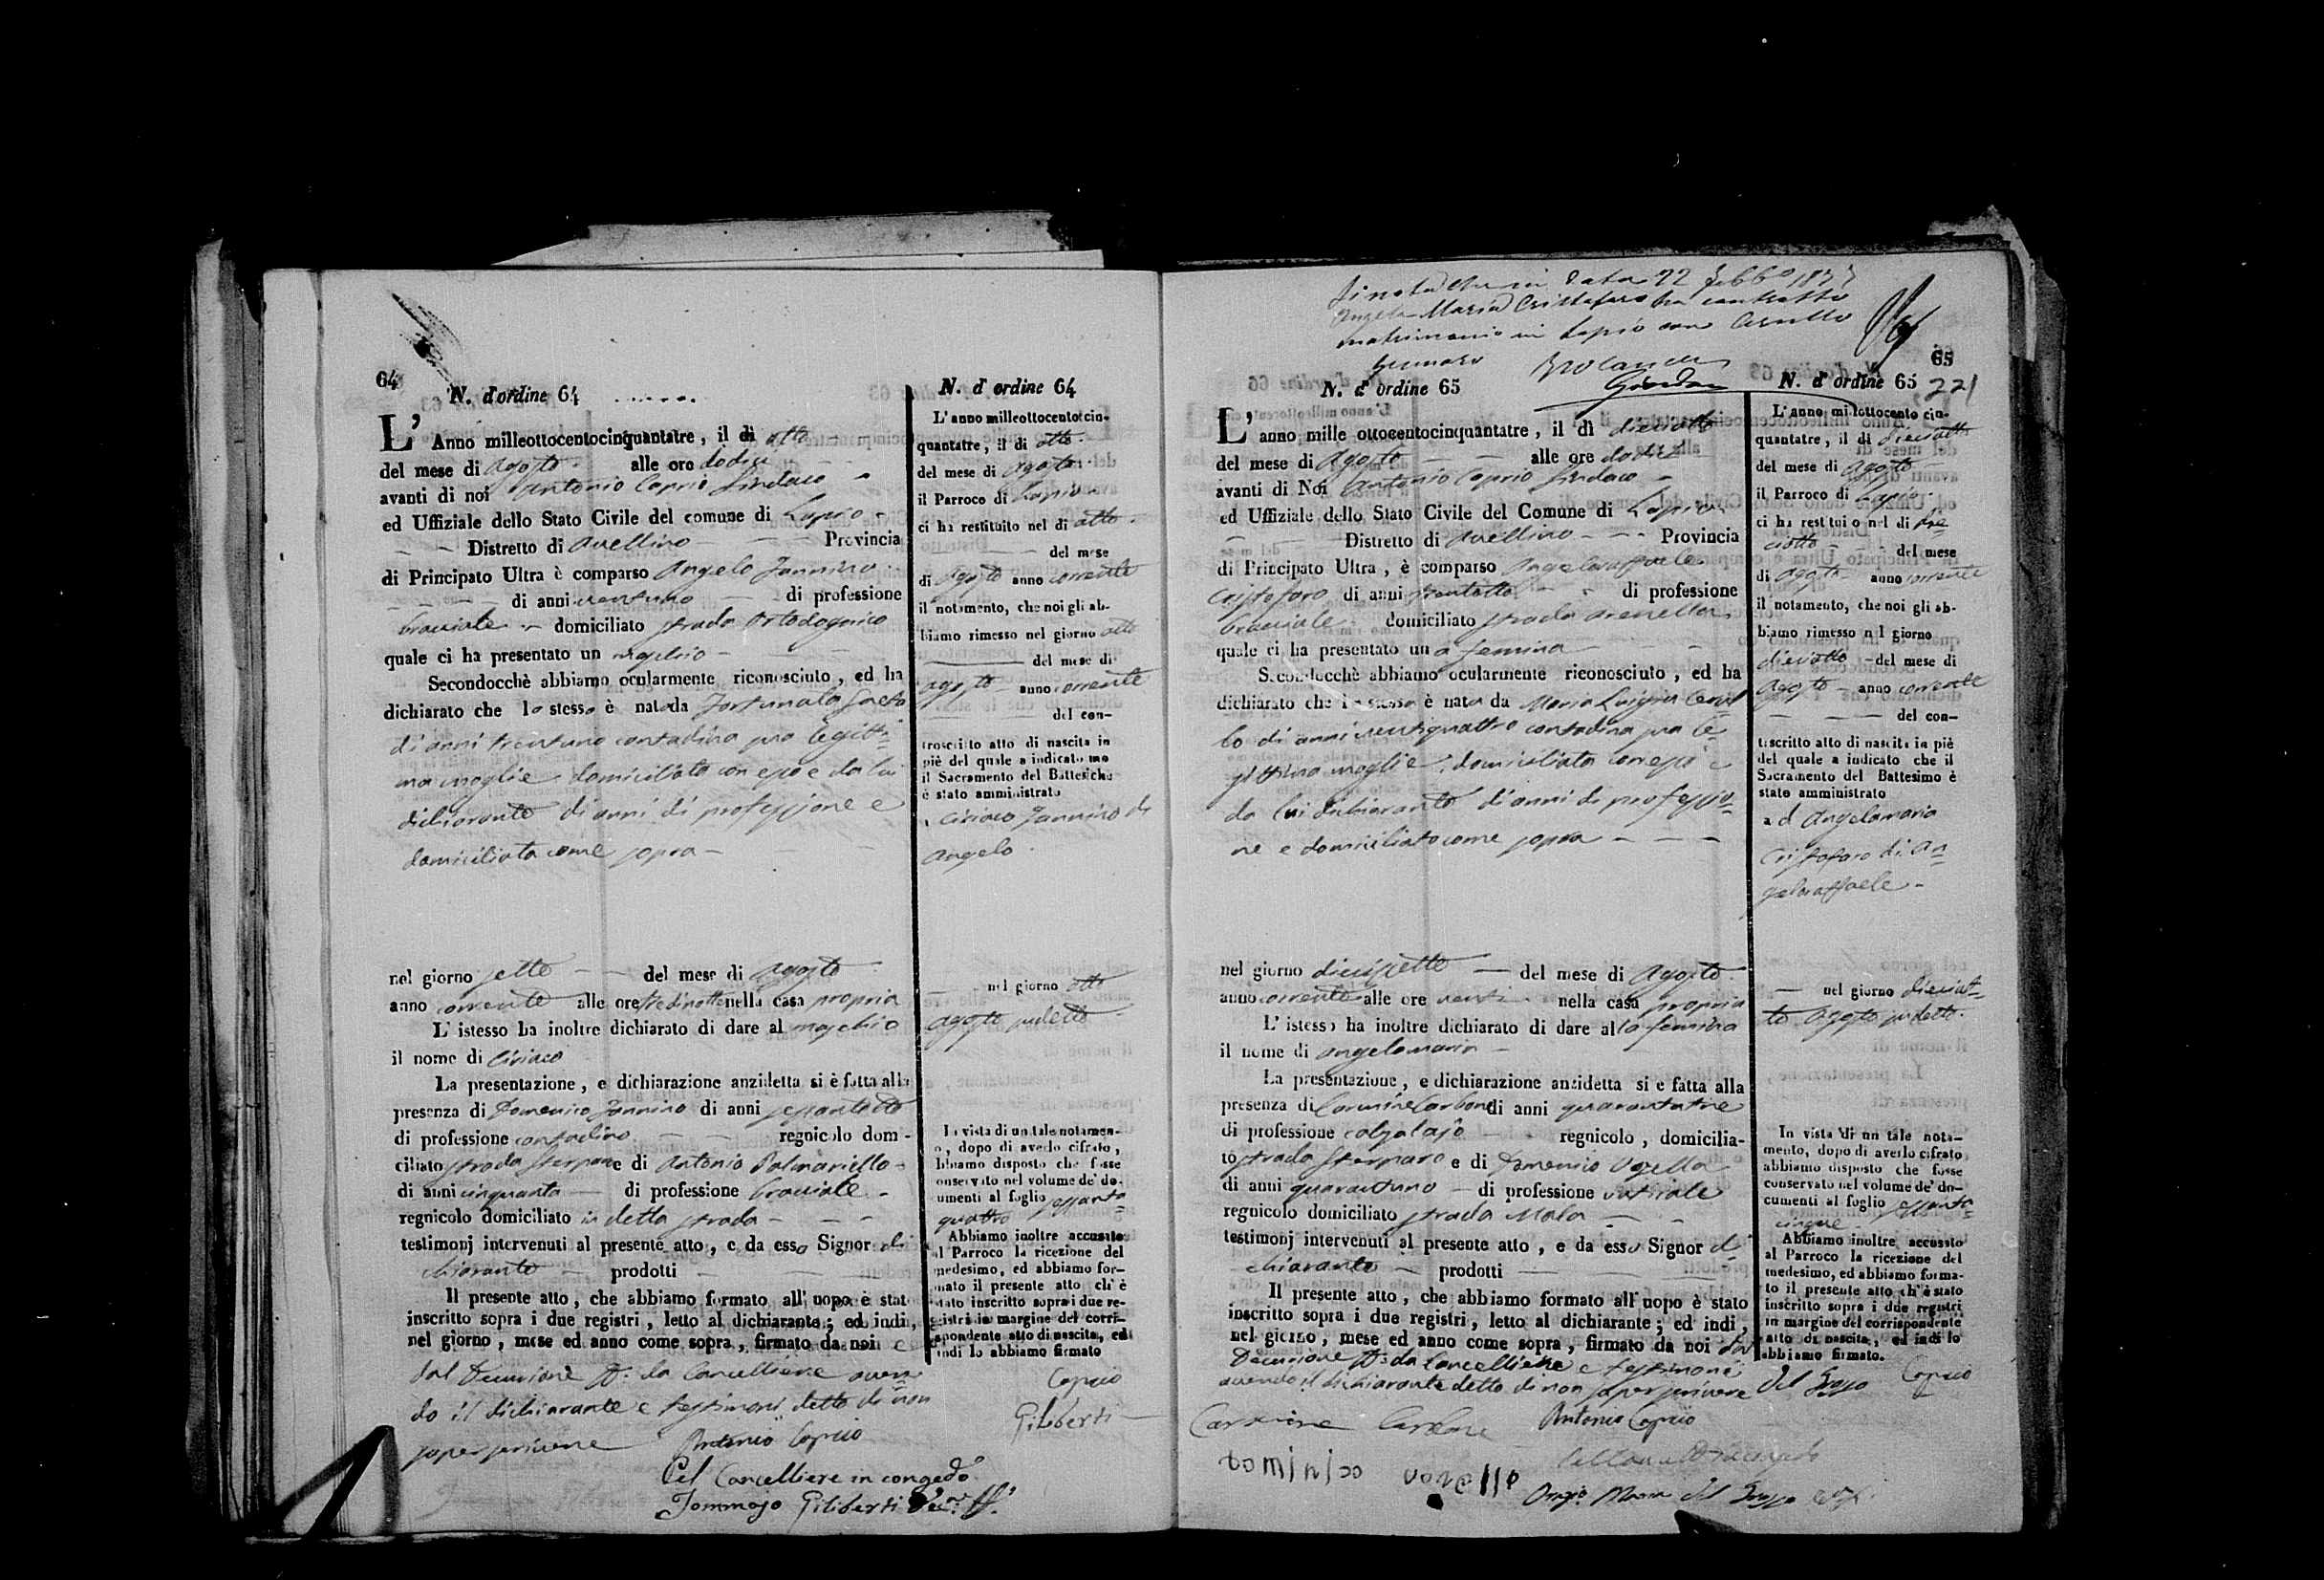 64
N. d'ordine 64
L' Anno milleottocentocinquantatre, il dì otto
del mese di Agosto alle ore dodici
avanti di noi Antonio Caprio Sindaco
ed Uffiziale dello Stato Civile del comune di Lapio
Distretto di Avellino Provincia
di Principato Ultra è comparso Angelo Jannino
di anni di professione
bracciale domiciliato strada Ortodognico
quale ci ha presentato un maschio
Secondocchè abbiamo ocularmente riconosciuto, ed ha
dichiarato che lo stesso è nato da Fortunata
di anni trentuno contadina sua legitti-
ma moglie domiciliata con esso e da lui
dichiarante di anni di professione e
domiciliata come sopra
nel giorno sette del mese di Agosto
anno corrente alle ore nella casa propria
L' istesso ha inoltre dichiarato di dare al maschio
il nome di Ciriaco
La presentazione, e dichiarazione anzidetta si è fatta alla
presenza di Domenico Jannino di anni sessantotto
di professione contadino regnicolo dom-
ciliato strada Sterparo e di Antonio Palmariello
di anni cinquanta di professione bracciale
regnicolo domiciliato in detta strada
testimonj intervenuti al presente atto, e da esso Signor di
chiarante prodotti
Il presente atto, che abbiamo formato all' uopo è stato
inscritto sopra i due registri, letto al dichiarante; ed indi,
nel giorno, mese ed anno come sopra, firmato da noi e
dal Decurione ff. da Cancelliere aven
do il dichiarante e testimoni detto di non
saper scrivere Antonio Caprio
Pel Cancelliere in congedo
Tommaso Giliberti Dec. ff.
N. d' ordine 64
L' anno milleottocento cin-
quantatre, il di otto
del mese di Agosto
il Parroco di Lapio
ci ha restituito nel di otto
del mese
di Agosto anno corrente
il notamento, che noi gli ab-
biamo rimesso nel giorno otto
del mese di
Agosto anno corrente
del con-
troscritto atto di nascita in
piè del quale a indicato
il Sacramento del Battesimo
è stato amministrato
a Ciriaco Jannino di
Angelo
nel giorno otto
Agosto sudetto
In vista di un tale notamen-
o, dopo di averlo cifrato,
bbiamo disposto che fosse
onservato nel volume de' do-
umenti al foglio sessanta
quattro
Abbiamo inoltre accusato
al Parroco la ricezione del
medesimo, ed abbiamo for-
mato il presente atto ch' è
stato inscritto sopra i due re-
gistri in margine del corri-
spondente atto di nascita, ed
indi lo abbiamo firmato
Caprio
Giliberti
Si nota che in data 22 Febb.o
Angela Maria Cristofaro ha contratto
matrimonio in Lapio con Cerullo
Gennaro
65
221
N. d' ordine 65
L' anno mille ottocentocinquantatre, il dì dieciotto
del mese di Agosto alle ore dodici
avanti di Noi Antonio Caprio Sindaco
ed Uffiziale dello Stato Civile del Comune di Lapio
Distretto di Avellino Provincia
di Principato Ultra, è comparso Angeloraffaele
Cristofaro di anni trentotto di professione
bracciale domiciliato strada Arenella
quale ci ha presentato una femina
Secondocchè abbiamo ocularmente riconosciuto, ed ha
dichiarato che la stessa è nata da Maria Luigia Cerul
lo di anni ventiquattro contadina sua le-
gittima moglie, domiciliata con esso e
da lui dichiarante di anni di professio-
ne e domiciliato come sopra
nel giorno diecisette del mese di Agosto
anno corrente alle ore venti nella casa propria
L' istesso ha inoltre dichiarato di dare alla femina
il nome di Angelamaria
La presentazione, e dichiarazione anzidetta si e fatta alla
presenza di Carmine Carbone di anni quarantatre
di professione calzolajo regnicolo, domicilia-
to strada Sterparo e di Domenico Vozella
di anni quarantuno di professione vaticale
regnicolo domiciliato strada Mala
testimonj intervenuti al presente atto, e da esso Signor di
chiarante prodotti
Il presente atto, che abbiamo formato all' uopo è stato
inscritto sopra i due registri, letto al dichiarante; ed indi,
nel giorno, mese ed anno come sopra, firmato da noi dal
Decurione ff. da Cancelliere e testimoni
avendo il dichiarante detto di non saper scrivere
Carmine Carbone Antonio Caprio
N. d' ordine 65
L' anno millottocento cin-
quantatre, il di dieciotto
del mese di Agosto
il Parroco di Lapio
ci ha restituio nel di die
ciotto del mese
di Agosto anno corrente
il notamento, che noi gli ab-
biamo rimesso nel giorno
dieciotto del mese di
Agosto anno corrente
del con-
troscritto atto di nascita in piè
del quale a indicato che il
Sacramento del Battesimo è
stato amministrato
ad Angelamaria
Cristofaro di An
geloraffaele
nel giorno dieciot-
to Agosto sudetto
In vista di un tale nota-
mento, dopo di averlo cifrato
abbiamo disposto che fosse
conservato nel volume de' do-
cumenti al foglio sessanta-
cinque
Abbiamo inoltre accusato
al Parroco la ricezione del
medesimo, ed abbiamo forma-
to il presente atto ch' è stato
inscritto sopra i due registri
in margine del corrispondente
atto di nascita, ed indi lo
abbiamo firmato.
Caprio